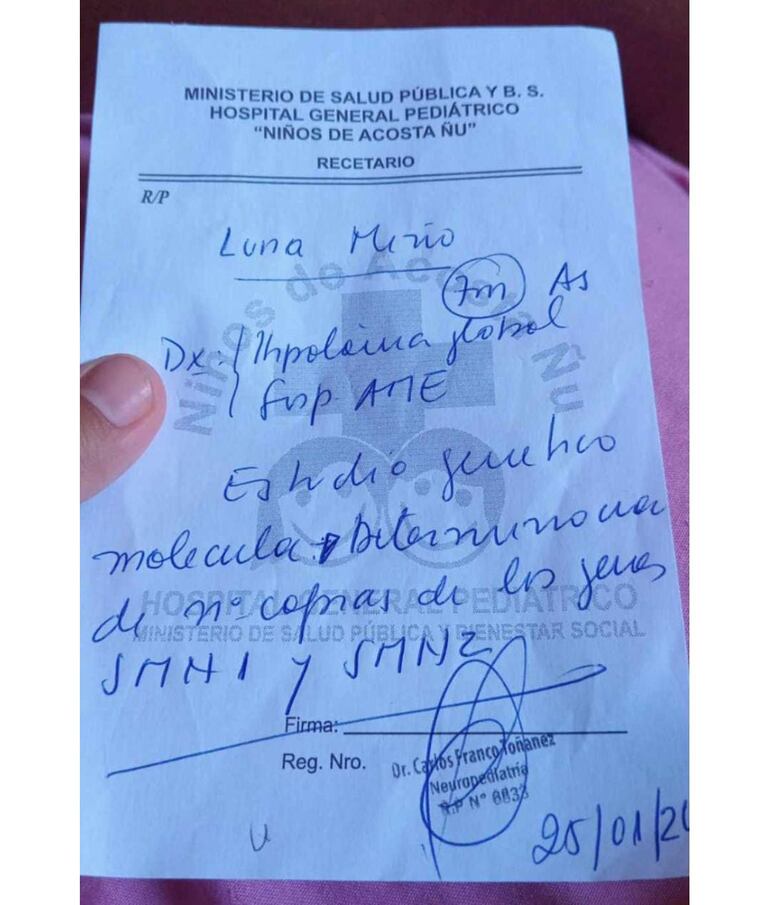 MINISTERIO DE SALUD PÚBLICA Y B. S.
HOSPITAL GENERAL PEDIÁTRICO
"NIÑOS DE ACOSTA ÑU"
RECETARIO
R/P
Luna
7m As
Dx: Hipotonia global
Susp. AME
Estudio genetico
molecular Determinacion
de nº copias de los genes
SMN1 y SMN2
Niños de Acosta Ñu
HOSPITAL GENERAL PEDIÁTRICO
MINISTERIO DE SALUD PÚBLICA Y BIENESTAR SOCIAL
Firma:
Reg. Nro.
Dr. Carlos Franco Toñanez
Neuropediatría
R.P Nº 6833
25/01/2